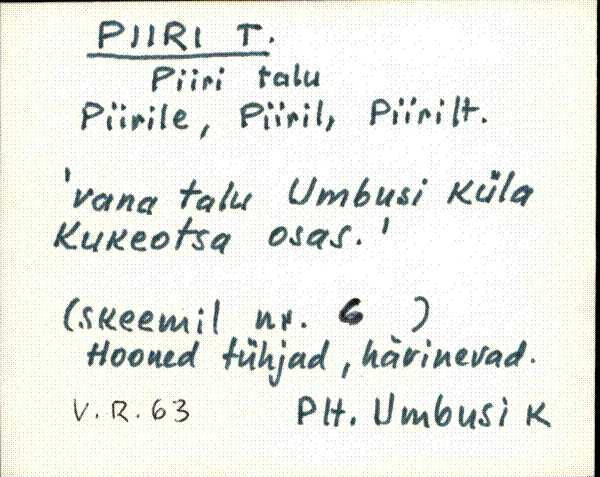 PIIRI T.
Piiri talu
Piirile, Piiril, Piirilt.
'vana talu Umbusi küla
Kukeotsa osas.'
(skeemil nr. 6 )
Hooned tühjad, härinevad.
V.R.63 Plt. Umbusi K